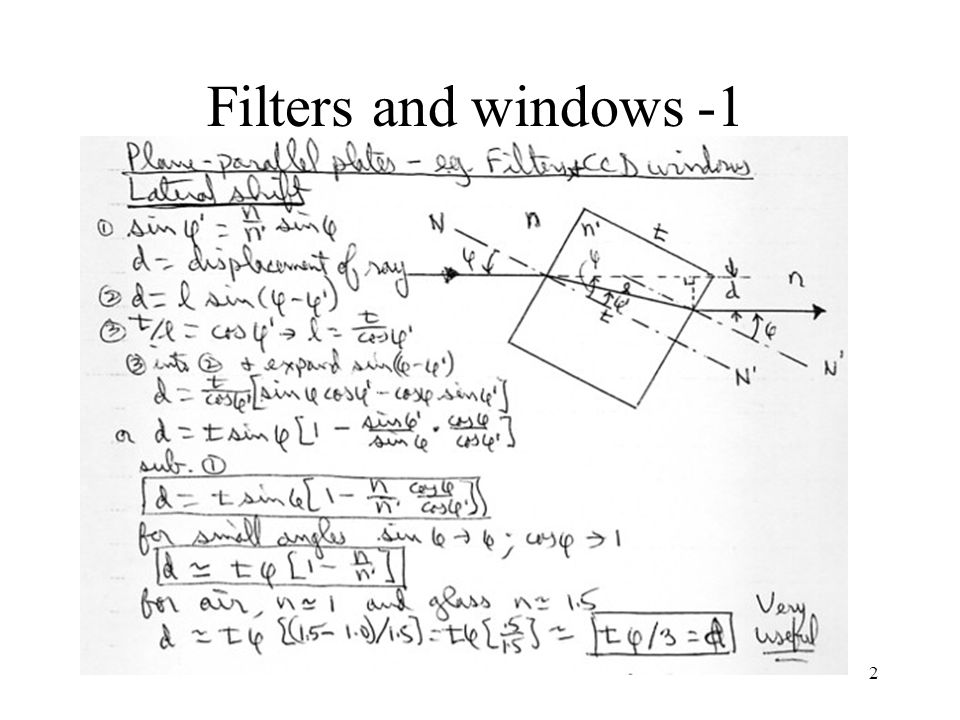 Filters and windows -1
Plane-parallel plates - eg. Filters + CCD windows
Lateral shift
① sin φ' = n/n' sin φ
d = displacement of ray
② d = l sin(φ-φ')
③ t/l = cosφ' → l = t/cosφ'
③ into ② + expand sin(φ-φ')
d = t/cosφ' [sin φ cosφ' - cosφ sinφ']
or d = t sin φ [1 - sinφ'/sinφ · cosφ/cosφ']
sub. ①
d = t sinφ [1 - n/n' cosφ/cosφ']
for small angles sin φ → φ ; cosφ → 1
d ≃ tφ [1 - n/n']
for air, n ≃ 1 and glass n ≃ 1.5
d ≃ tφ [(1.5-1.0)/1.5] = tφ [.5/1.5] ≃ tφ/3 = d
Very
useful
N
n
n'
t
φ
φ
l
φ'
t
d
n
φ
N'
N'
2